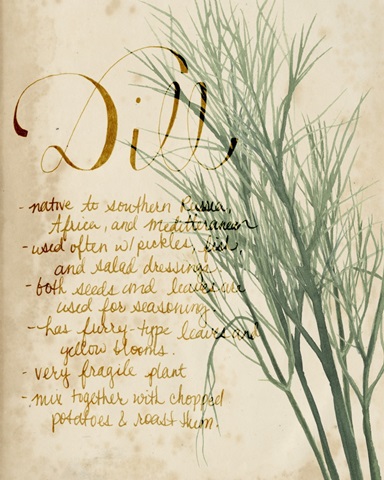 Dill
- native to southern Russia,
Africa, and Mediterranean
- used often w/ pickles, fish,
and salad dressings.
- both seeds and leaves are
used for seasoning.
- has furry-type leaves and
yellow blooms.
- very fragile plant
- mix together with chopped
potatoes & roast them.